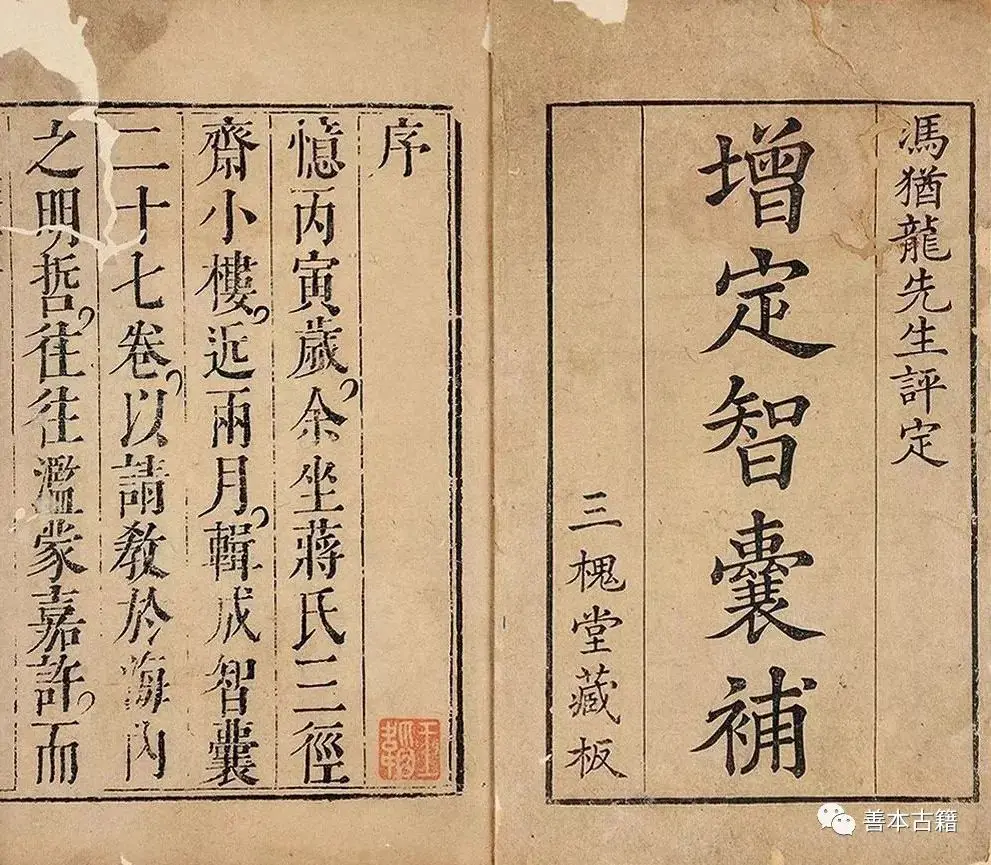 馮猶龍先生評定
增定智囊補
三槐堂藏板
序
憶丙寅歲，余坐蔣氏三徑
齋小樓，近兩月，輯成智囊
二十七卷，以請教於海內
之明哲，往往濫蒙嘉許，而
善本古籍